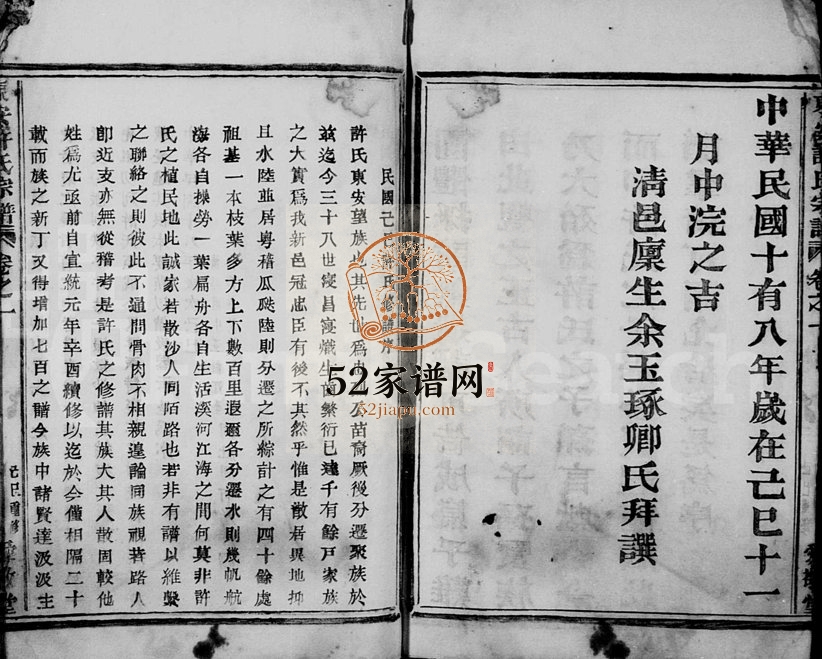 中華民國十有八年歲在己巳十一
月中浣之吉
清邑廪生余玉琢卿氏拜譔
民國己巳許氏修譜序
許氏東安望族也其先世爲 苗裔厥後分遷聚族於
茲迄今三十八世寖昌寖熾生齒繁衍已達千有餘戸家族
之大實爲我新邑冠忠臣有後不其然乎惟是散居異地抑
且水陸並居粤稽瓜瓞陸則分遷之所綜計之有四十餘處
祖基一本枝葉多方上下數百里遐邇各分遷水則幾帆航
海各自操勞一葉扁舟各自生活溪河江海之間何莫非許
氏之植民地此誠家若散沙人同陌路也若非有譜以維繫
之聯絡之則彼此不通問骨肉不相親遑論同族視若路人
卽近支亦無從稽考是許氏之修譜其族大其人散固較他
姓爲尤亟前自宣統元年辛酉續修以迄於今僅相隔二十
載而族之新丁又得增加七百之譜今族中諸賢達汲汲主
許氏宗譜 卷之一
己巳重修
52家谱网
52jiapu.com